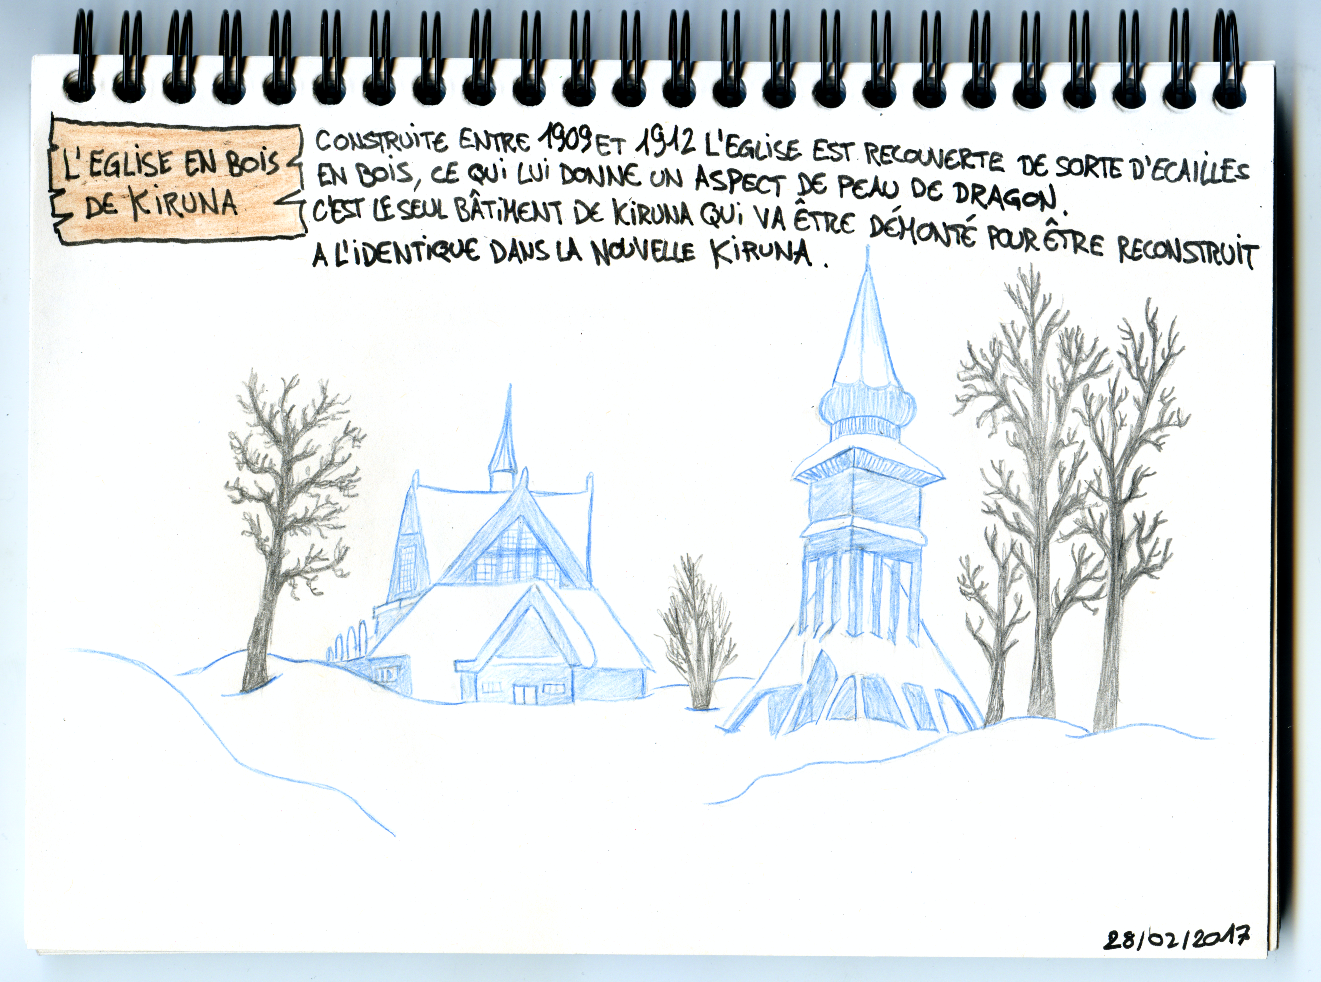 L'EGLISE EN BOIS
DE KIRUNA
CONSTRUITE ENTRE 1909 ET 1912 L'EGLISE EST RECOUVERTE DE SORTE D'ECAILLES
EN BOIS, CE QUI LUI DONNE UN ASPECT DE PEAU DE DRAGON.
C'EST LE SEUL BÂTIMENT DE KIRUNA QUI VA ÊTRE DÉMONTÉ POUR ÊTRE RECONSTRUIT
A L'IDENTIQUE DANS LA NOUVELLE KIRUNA.
28/02/2017